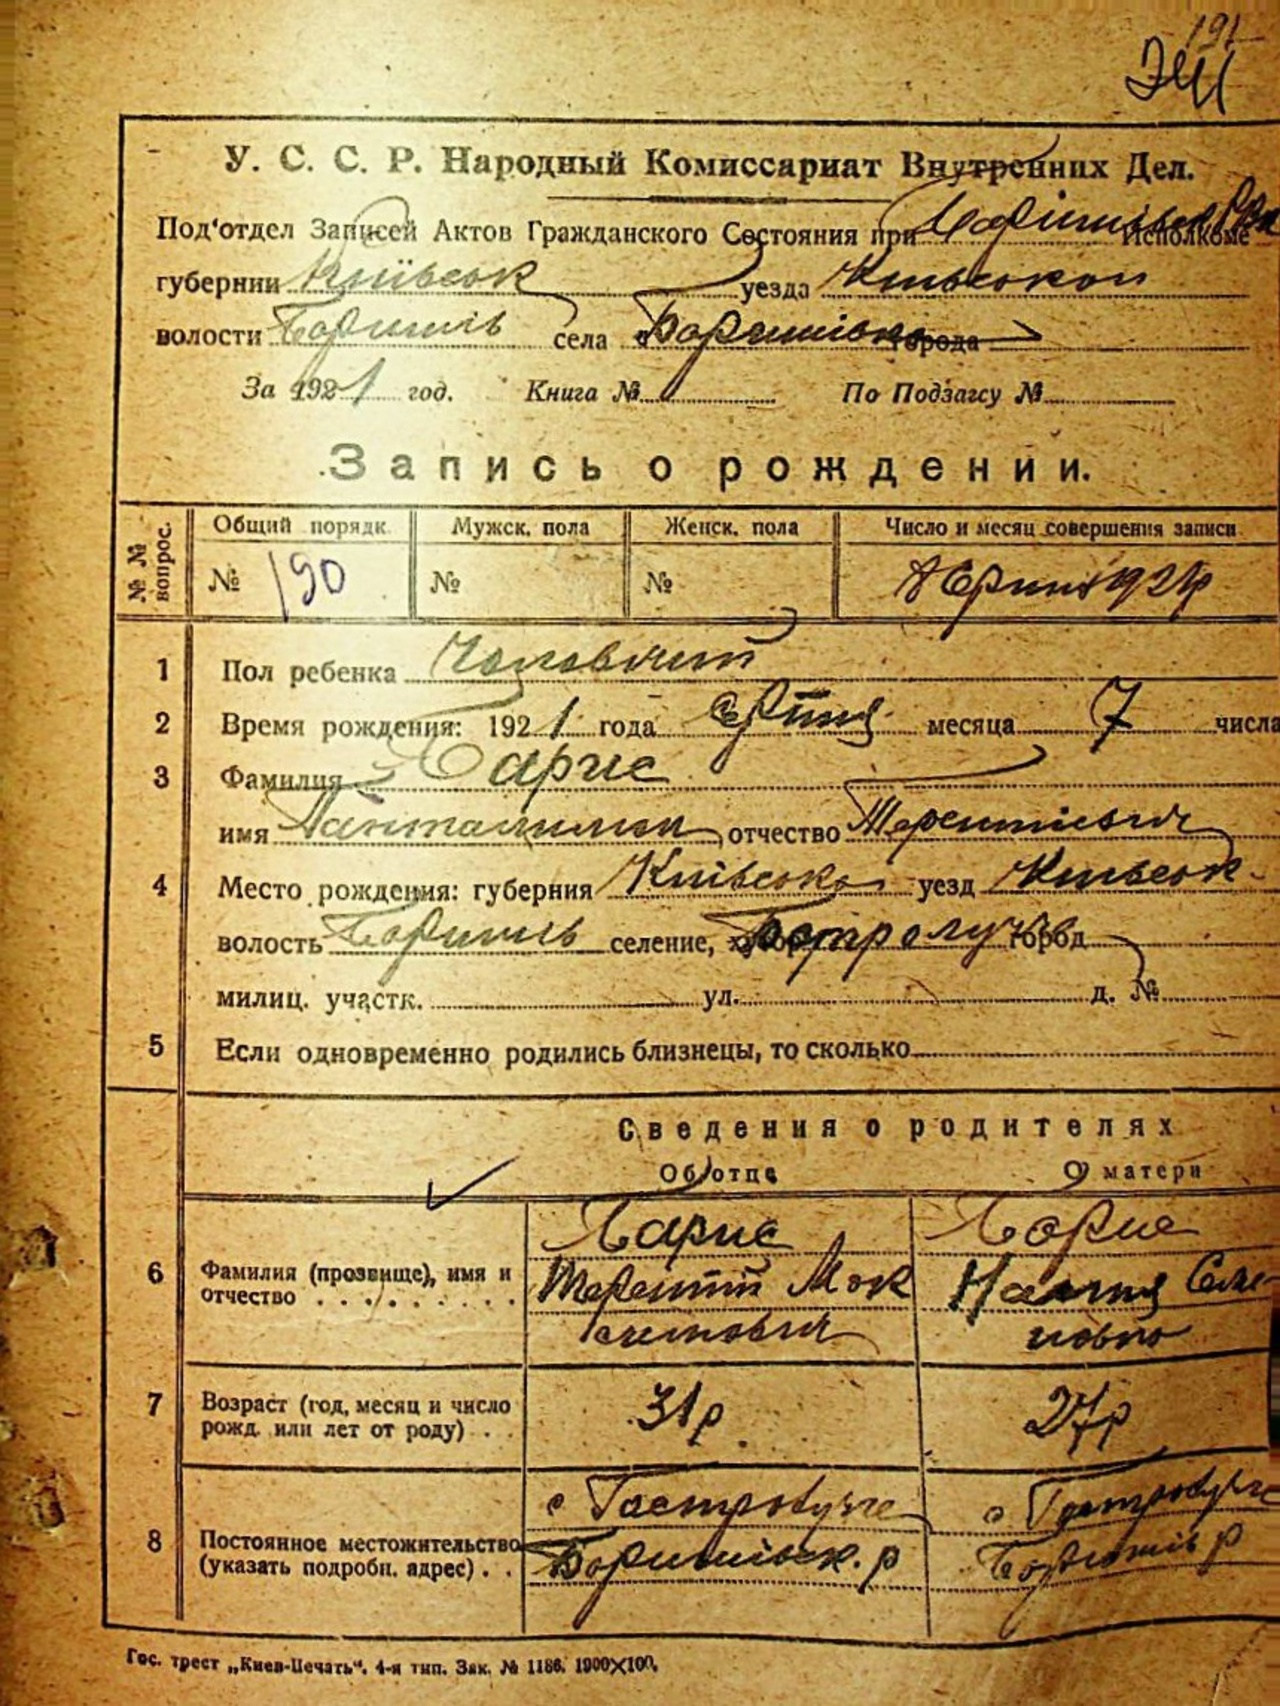 191
У. С. С. Р. Народный Комиссариат Внутренних Дел.
Под'отдел Записей Актов Гражданского Состояния при Исполкоме
губернии Київськ уезда Київської
волости Бориспіль села города
За 1921 год. Книга № По Подзагсу №
Запись о рождении.
№ № вопрос. Общий порядк. Мужск. пола Женск. пола Число и месяц совершения записи
№ 190 № № 1921р
1 Пол ребенка Чоловічий
2 Время рождения: 1921 года серпня месяца 7 числа
3 Фамилия Барис
имя отчество Терентієвич
4 Место рождения: губерния Київська уезд Київськ
волость селение, город
милиц. участк. ул. д. №
5 Если одновременно родились близнецы, то сколько
Сведения о родителях
Об отце О матери
Барис Барис
6 Фамилия (прозвище), имя и отчество Терентій Мак Сем-
новна
7 Возраст (год, месяц и число рожд. или лет от роду) 31р 27р
с с
8 Постоянное местожительство (указать подробн. адрес) р р
Гос. трест „Киев-Печать“. 4-я тип. Зак. № 1186. 1900×100.